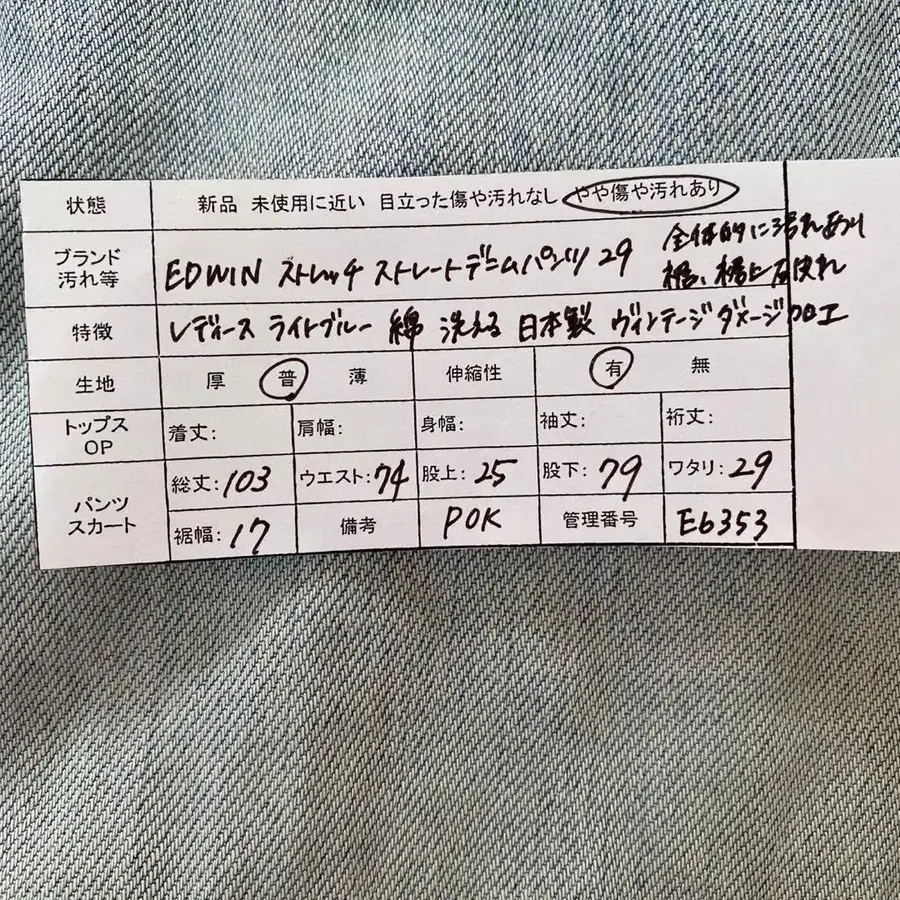 状態 新品 未使用に近い 目立った傷や汚れなし やや傷や汚れあり
ブランド 汚れ等 EDWIN ストレッチ ストレートデニムパンツ 29 全体的に汚れあり
裾、裾上
特徴 レディース ライトブルー 綿 洗える 日本製 ヴィンテージダメージ加工
生地 厚 普 薄 伸縮性 有 無
トップス OP 着丈: 肩幅: 身幅: 袖丈: 裄丈:
パンツ スカート 総丈:103 ウエスト:74 股上:25 股下:79 ワタリ:29
裾幅:17 備考 POK 管理番号 E6353